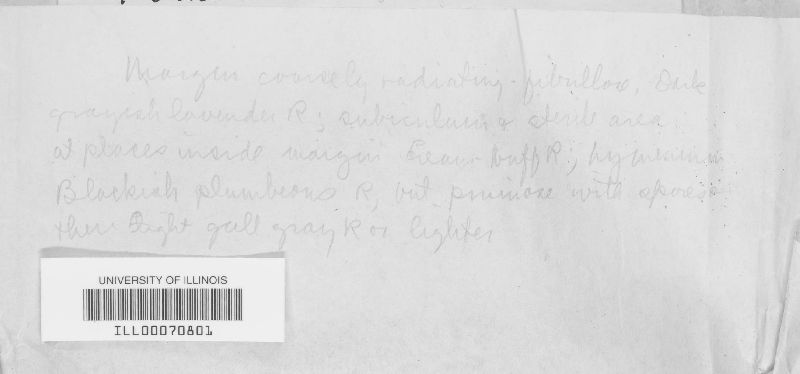 Margin coarsely radiating-fibrillose, Dark
grayish lavender R; subiculum & sterile area
at places inside margin Cream-buff R; hymenium
Blackish plumbeous R, but pruinose with spores
then Light gull gray R or lighter
UNIVERSITY OF ILLINOIS
ILL00070801